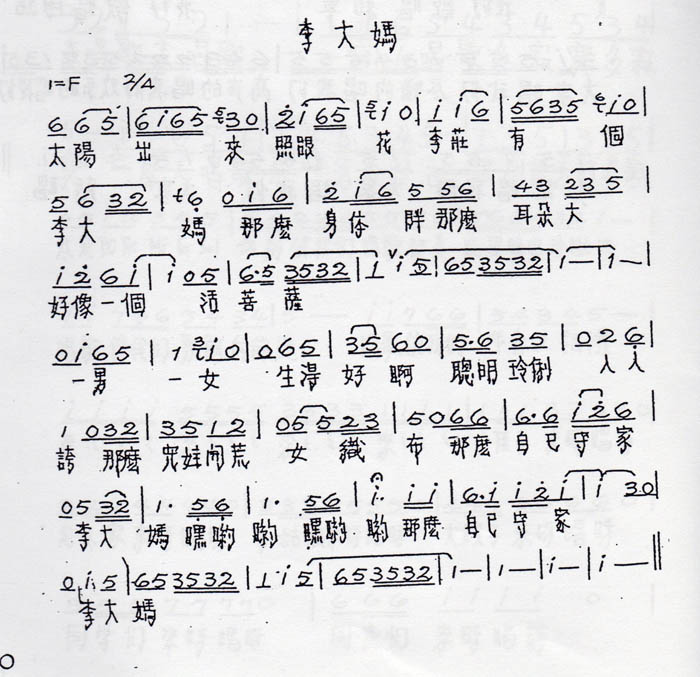 李大媽
1=F 2/4
6 6 5 | 6 i 6 5 3 0 | 2 i 6 5 | i 0 | i i 6 | 5 6 3 5 i 0 |
太陽 出 來 照眼 花 李莊 有 個
5 6 3 2 | 6 0 i 6 | 2 i 6 5 5 6 | 4 3 2 3 5 |
李大 媽 那麼 身体 胖 那麼 耳朵大
i 2 6 i | i 0 5 | 6·5 3 5 3 2 | 1 i 5 | 6 5 3 5 3 2 | i — | i — |
好像一個 活菩薩
0 i 6 5 | 1 i 0 | 0 6 5 | 3 5 6 0 | 5·6 3 5 | 0 2 6 |
一男 一女 生得 好 啊 聰明 玲俐 人人
1 0 3 2 | 3 5 1 2 | 0 5 5 2 3 | 5 0 6 6 | 6·6 i 2 6 |
誇 那麼 兒娃開荒 女 織 布 那麼 自己守家
0 5 3 2 | 1· 5 6 | 1· 5 6 | i· i i | 6·i i 2 i | i 3 0 |
李大 媽 嘿喲 喲 嘿喲 喲 那麼 自己 守 家
0 i 5 | 6 5 3 5 3 2 | 1· i 5 | 6 5 3 5 3 2 | i — | i — | i — | i — ||
李大 媽